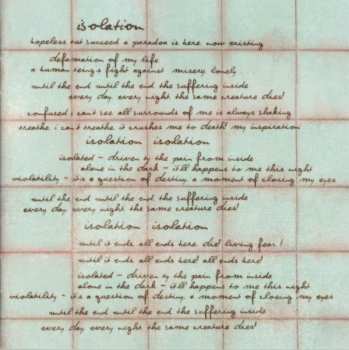 isolation
hopeless not succeed a paradox is here now existing
defamation of my life
a human being's fight against misery lonely
until the end until the end the suffering inside
every day every night the same creature dies!
confused i can't see all surrounds of me is always shaking
breathe i can't breathe it crushes me to death! my inspiration
isolation isolation
isolated - driven by the pain from inside
alone in the dark - it'll happens to me this night
violability - it's a question of destiny a moment of closing my eyes
until the end until the end the suffering inside
every day every night the same creature dies!
isolation isolation
until it ends all ends here die! living fear!
until it ends all ends here! all ends here!
isolated - driven by the pain from inside
alone in the dark - it'll happens to me this night
violability - it's a question of destiny a moment of closing my eyes
until the end until the end the suffering inside
every day every night the same creature dies!